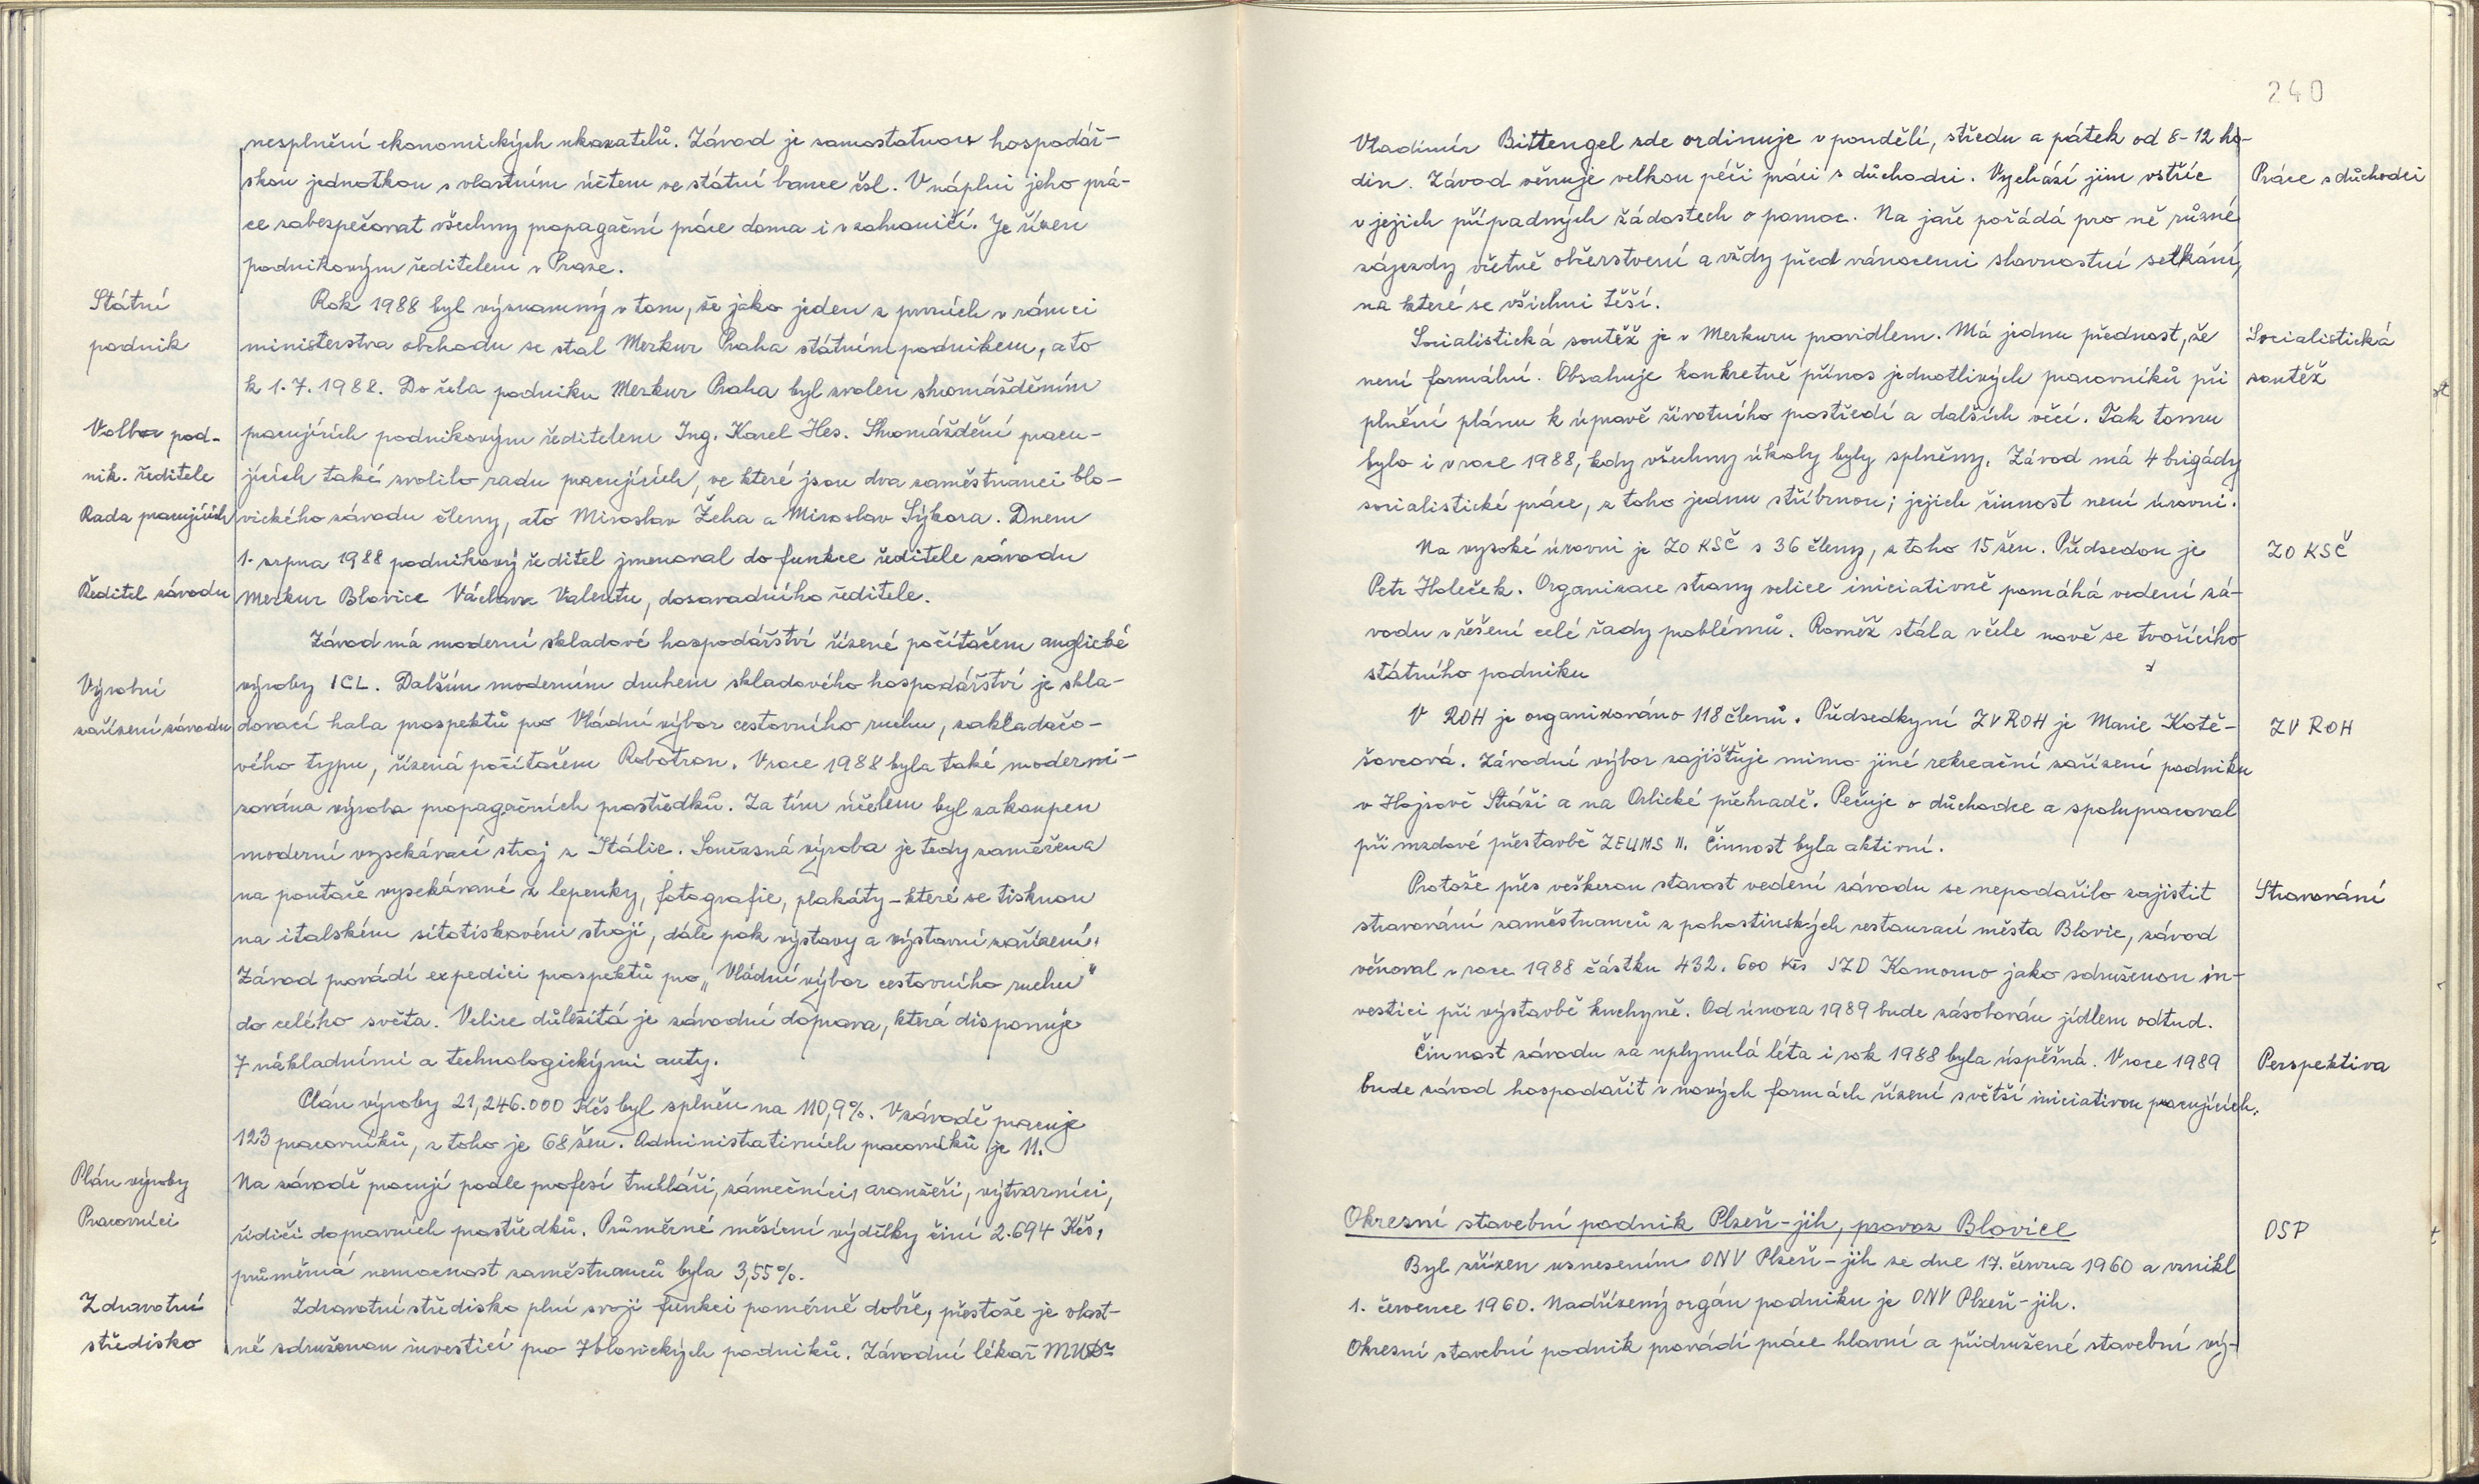 nesplnění ekonomických ukazatelů. Závod je samostatnou hospodář-
skou jednotkou s vlastním účtem ve státní bance čsl. V náplni jeho prá-
ce zabezpečovat všechny propagační práce doma i v zahraničí. Je řízen
podnikovým ředitelem v Praze.
Státní
podnik
Rok 1988 byl významný v tom, že jako jeden z prvních v rámci
ministerstva obchodu se stal Merkur Praha státním podnikem, a to
k 1.7.1988. Do čela podniku Merkur Praha byl zvolen shromážděním
Volba pod-
nik. ředitele
Rada pracujících
pracujících podnikovým ředitelem Ing. Karel Hes. Shromáždění pracu-
jících také zvolilo radu pracujících, ve které jsou dva zaměstnanci blo-
vického závodu členy, a to Miroslav Žeha a Miroslav Sýkora. Dnem
1. srpna 1988 podnikový ředitel jmenoval do funkce ředitele závodu
Ředitel závodu
Merkur Blovice Václava Valentu, dosavadního ředitele.
Závod má moderní skladové hospodářství řízené počítačem anglické
Výrobní
zařízení závodu
výroby ICL. Dalším moderním druhem skladového hospodářství je skla-
dovací hala prospektů pro Vládní výbor cestovního ruchu, zakladačo-
vého typu, řízená počítačem Robotron. V roce 1988 byla také moderni-
zována výroba propagačních prostředků. Za tím účelem byl zakoupen
moderní vysekávací stroj z Itálie. Současná výroba je tedy zaměřena
na poutače vysekávané z lepenky, fotografie, plakáty – které se tisknou
na italském sítotiskovém stroji, dále pak výstavy a výstavní zařízení.
Závod provádí expedici prospektů pro „Vládní výbor cestovního ruchu“
do celého světa. Velice důležitá je závodní doprava, která disponuje
7 nákladními a technologickými auty.
Plán výroby 21,246.000 Kčs byl splněn na 110,9%. V závodě pracuje
123 pracovníků, z toho je 68 žen. Administrativních pracovníků je 11.
Plán výroby
Pracovníci
Na závodě pracují podle profesí truhláři, zámečníci, aranžéři, výtvarníci,
řidiči dopravních prostředků. Průměrné měsíční výdělky činí 2.694 Kčs,
průměrná nemocnost zaměstnanců byla 3,55%.
Zdravotní
středisko
Zdravotní středisko plní svoji funkci poměrně dobře, přestože je vlast-
ně sdruženou investicí pro 7 blovických podniků. Závodní lékař MUDr
240
Vladimír Bittengel zde ordinuje v pondělí, středu a pátek od 8-12 ho-
din. Závod věnuje velkou péči práci s důchodci. Vychází jim vstříc
Práce s důchodci
v jejich případných žádostech o pomoc. Na jaře pořádá pro ně různé
zájezdy včetně občerstvení a vždy před vánocemi slavnostní setkání,
na které se všichni těší.
Socialistická soutěž je v Merkuru pravidlem. Má jednu přednost, že
Socialistická
soutěž
není formální. Obsahuje konkretně přínos jednotlivých pracovníků při
plnění plánu k úpravě životního prostředí a dalších věcí. Tak tomu
bylo i v roce 1988, kdy všechny úkoly byly splněny. Závod má 4 brigády
socialistické práce, z toho jednu stříbrnou; jejich činnost není úrovni.
Na vysoké úrovni je ZO KSČ s 36 členy, z toho 15 žen. Předsedou je
ZO KSČ
Petr Holeček. Organizace strany velice iniciativně pomáhá vedení zá-
vodu v řešení celé řady problémů. Rovněž stála v čele nově se tvořícího
státního podniku
V ROH je organizováno 118 členů. Předsedkyní ZV ROH je Marie Kotě-
ZV ROH
šovcová. Závodní výbor zajišťuje mimo jiné rekreační zařízení podniku
v Hojsově Stráži a na Orlické přehradě. Pečuje o důchodce a spolupracoval
při mzdové přestavbě ZEUMS II. Činnost byla aktivní.
Protože přes veškerou starost vedení závodu se nepodařilo zajistit
Stravování
stravování zaměstnanců z pohostinských restaurací města Blovic, závod
věnoval v roce 1988 částku 432.600 Kčs JZD Komorno jako sdruženou in-
vestici při výstavbě kuchyně. Od února 1989 bude zásobován jídlem odtud.
Činnost závodu za uplynulá léta i rok 1988 byla úspěšná. V roce 1989
Perspektiva
bude závod hospodařit v nových formách řízení s větší iniciativou pracujících.
Okresní stavební podnik Plzeň-jih, provoz Blovice
OSP
Byl zřízen usnesením ONV Plzeň-jih ze dne 17. června 1960 a vznikl
1. července 1960. Nadřízený orgán podniku je ONV Plzeň-jih.
Okresní stavební podnik provádí práce hlavní a přidružené stavební vý-